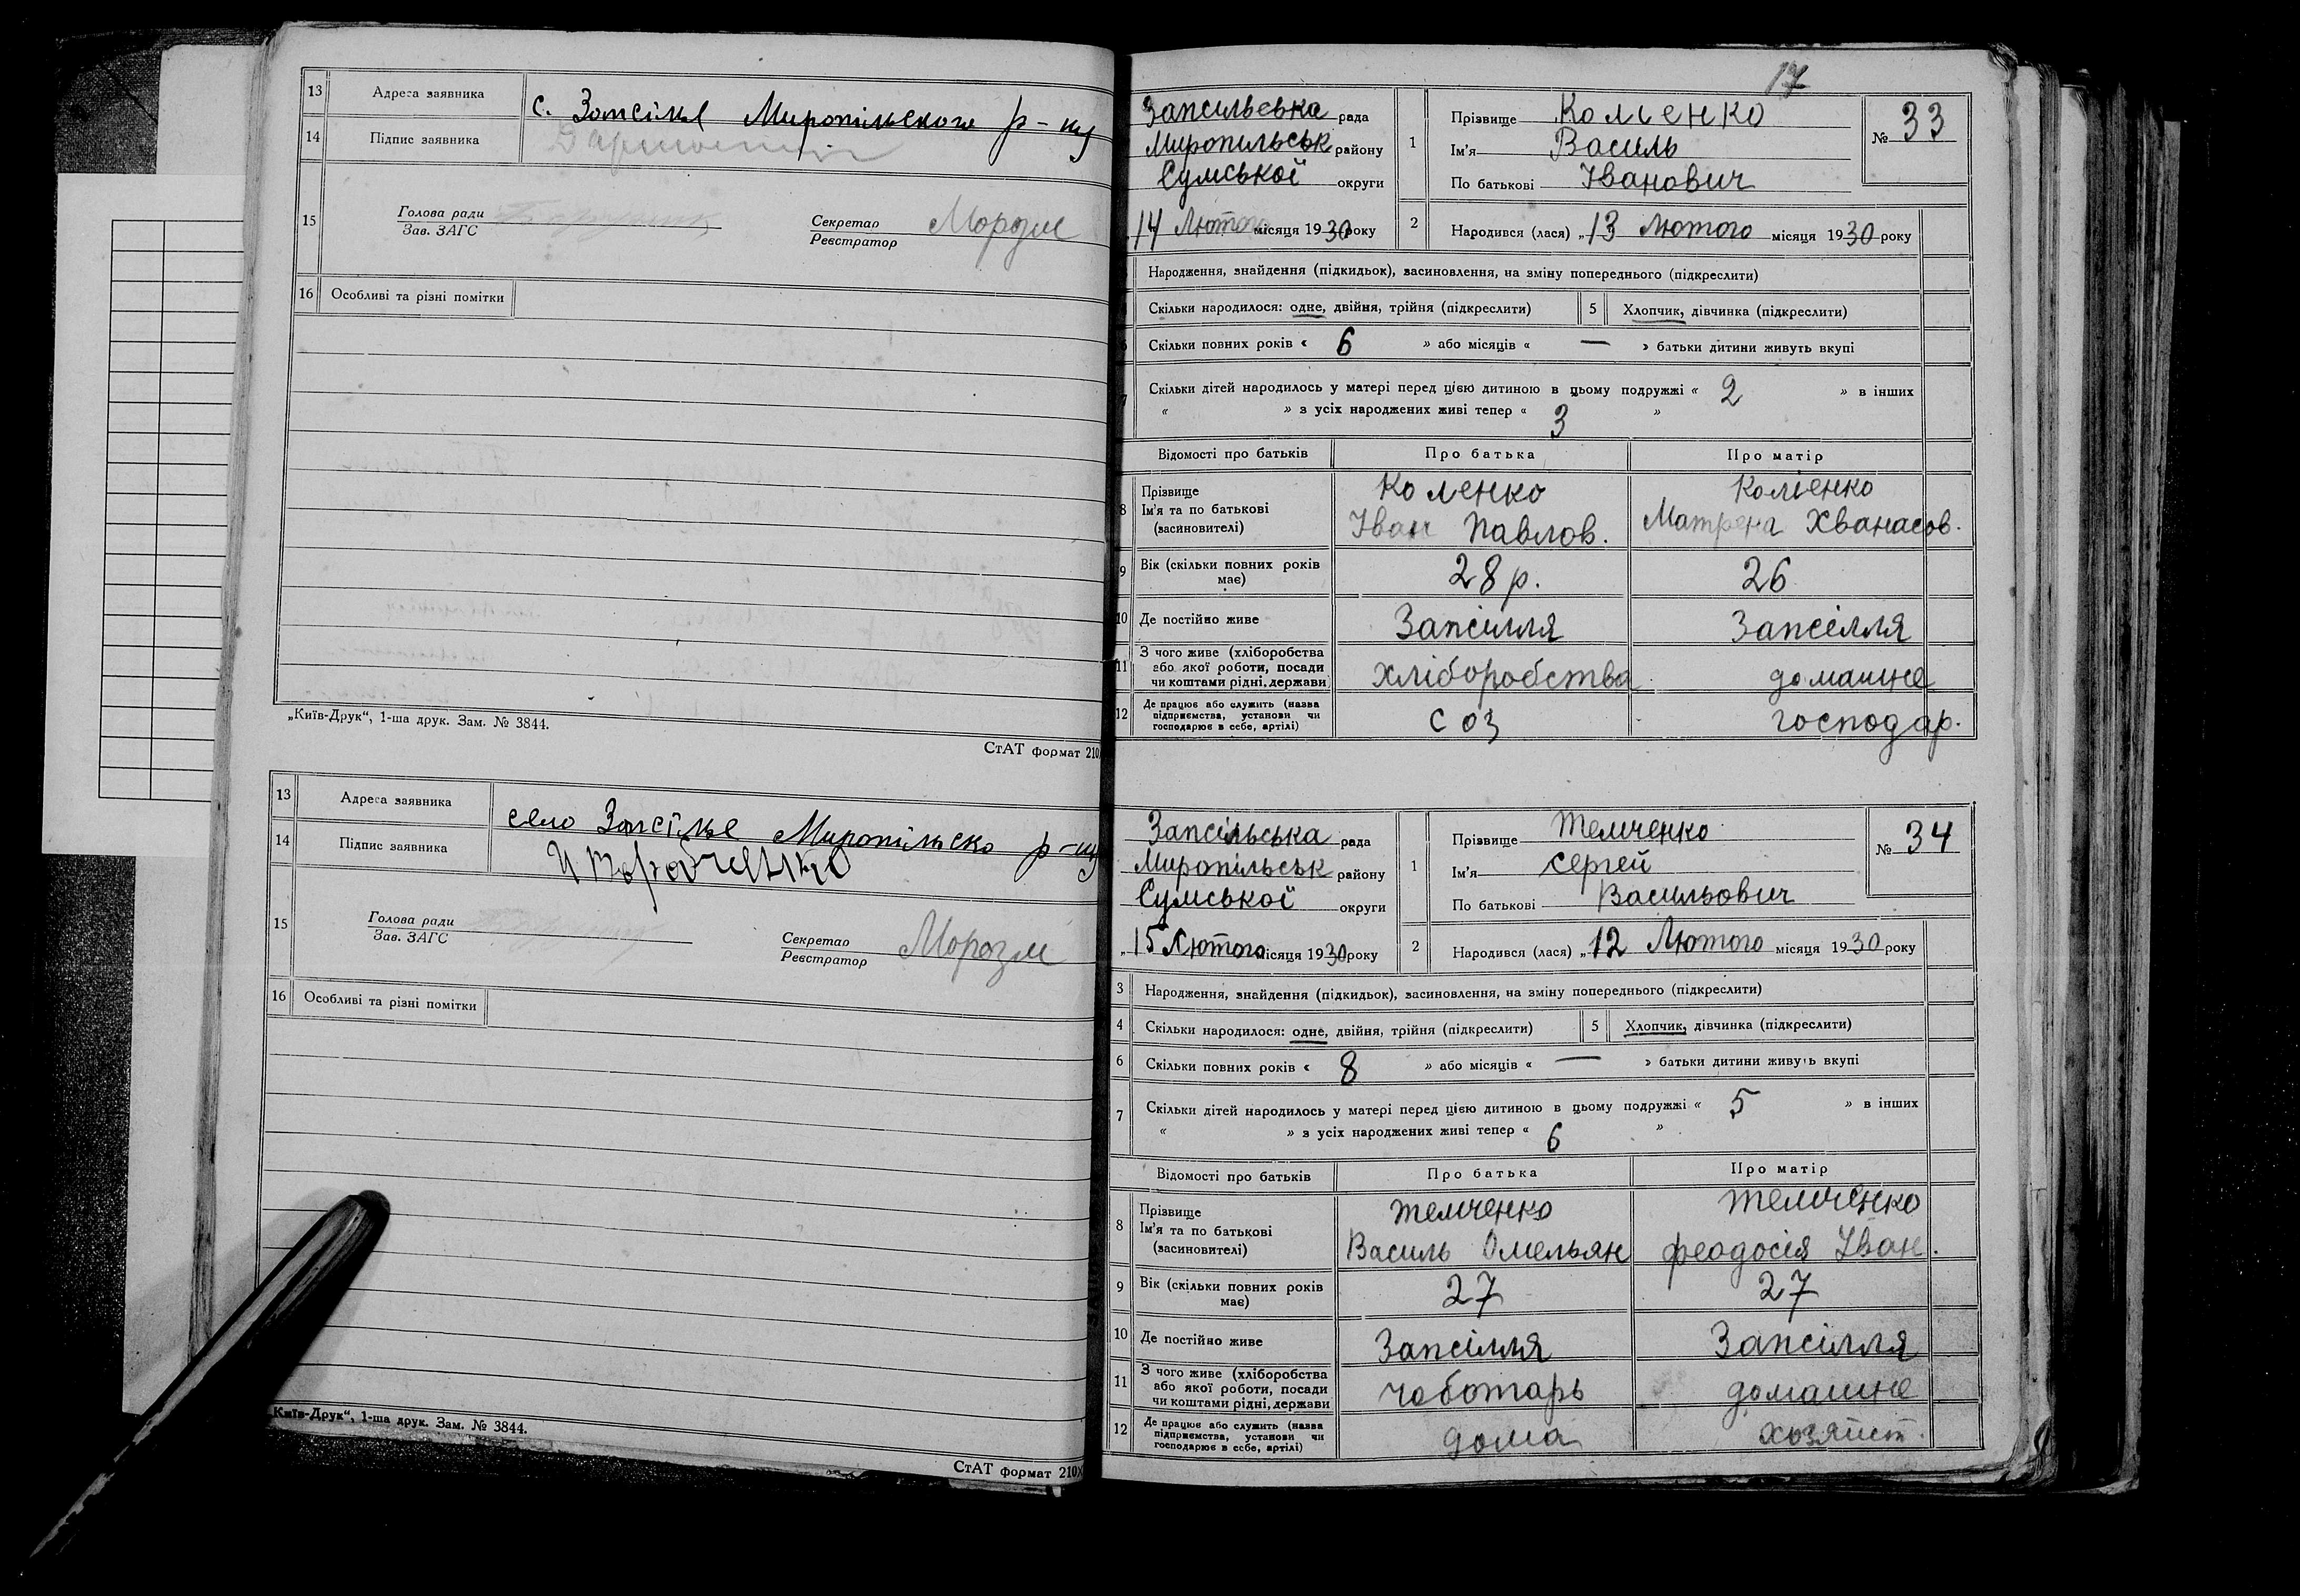 13 Адреса заявника с. Запсілля Миропільского р-ну
14 Підпис заявника
15 Голова ради
Зав. ЗАГС
Секретар
Реєстратор
16 Особливі та різні помітки
„Київ-Друк“, 1-ша друк. Зам. № 3844.
СтАТ формат 210
13 Адреса заявника село Запсілье Миропільско р-ну
14 Підпис заявника
15 Голова ради
Зав. ЗАГС
Секретар
Реєстратор
16 Особливі та різні помітки
Київ-Друк“, 1-ша друк. Зам. № 3844.
СтАТ формат 210
17
Запсильська рада
Миропильськ району
Сумської округи
14 Лютого місяця 1930 року
1 Прізвище Кольенко
Ім'я Василь
По батькові Іванович
№ 33
2 Народився (лася) „13 Лютого місяця 1930 року
Народження, знайдення (підкидьок), засиновлення, на зміну попереднього (підкреслити)
Скільки народилося: одне, двійня, трійня (підкреслити) 5 Хлопчик, дівчинка (підкреслити)
Скільки повних років « 6 » або місяців « — » батьки дитини живуть вкупі
Скільки дітей народилось у матері перед цією дитиною в цьому подружжі « 2 » в інших
« » з усіх народжених живі тепер « 3 »
Відомості про батьків Про батька Про матір
8 Прізвище Коленко Кольенко
Ім'я та по батькові Іван Павлов. Матрена Хванасов.
(засиновителі)
9 Вік (скільки повних років має) 28 р. 26
10 Де постійно живе Запсілля Запсілля
11 З чого живе (хліборобства
або якої роботи, посади
чи коштами рідні, держави хліборобства домашнє
12 Де працює або служить (назва
підприємства, установи чи
господарює в себе, артілі) СОЗ господар.
Запсільська рада
Миропільськ району
Сумської округи
„15 Лютого місяця 1930 року
1 Прізвище Темченко
Ім'я Сергей
По батькові Васильович
№ 34
2 Народився (лася) „12 Лютого місяця 1930 року
3 Народження, знайдення (підкидьок), засиновлення, на зміну попереднього (підкреслити)
4 Скільки народилося: одне, двійня, трійня (підкреслити) 5 Хлопчик, дівчинка (підкреслити)
6 Скільки повних років « 8 » або місяців « — » батьки дитини живуть вкупі
7 Скільки дітей народилось у матері перед цією дитиною в цьому подружжі « 5 » в інших
« » з усіх народжених живі тепер « 6 »
Відомості про батьків Про батька Про матір
8 Прізвище Темченко Темченко
Ім'я та по батькові Василь Омельян феодосія Іван.
(засиновителі)
9 Вік (скільки повних років має) 27 27
10 Де постійно живе Запсілля Запсілля
11 З чого живе (хліборобства
або якої роботи, посади
чи коштами рідні, держави чоботарь домашнє
12 Де працює або служить (назва
підприємства, установи чи
господарює в себе, артілі) дома хозяйст.